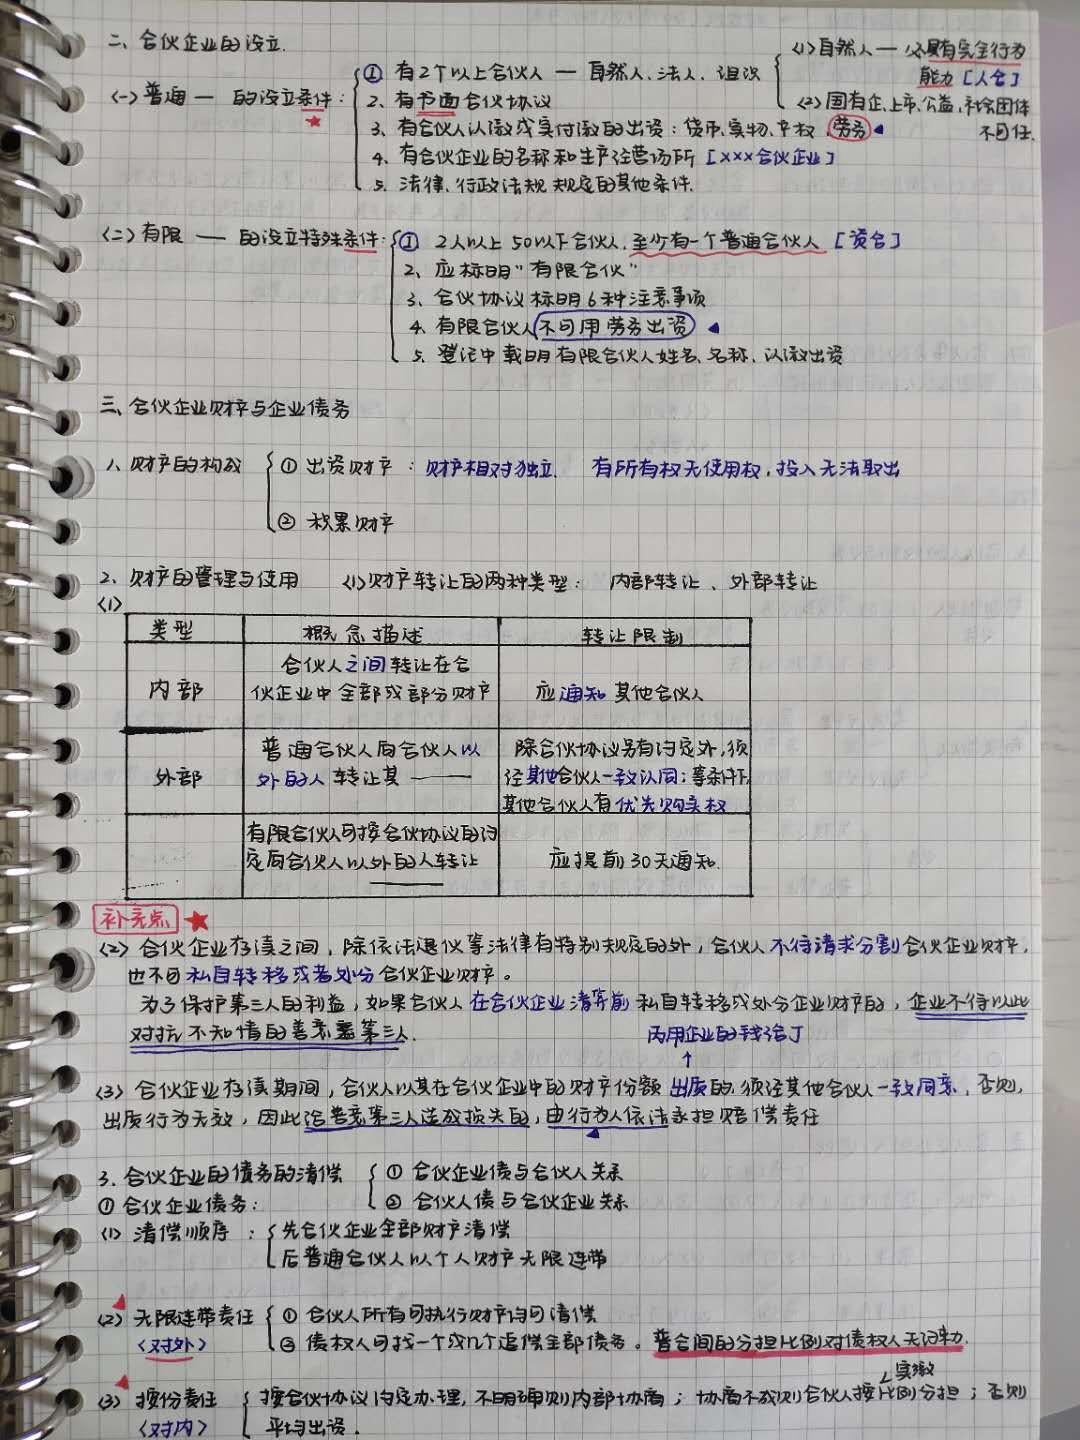 二、合伙企业的设立.
(一) 普通 — 的设立条件:
① 有2个以上合伙人 — 自然人、法人、组织
(1) 自然人 — 必具有完全行为
能力 [人合]
(2) 国有企、上市、公益、社会团体
不可任.
2、有书面合伙协议
3、有合伙人认缴或实付缴的出资: 货币、实物、产权、劳务
4、有合伙企业的名称和生产经营场所 [×××合伙企业]
5、法律、行政法规规定的其他条件.
(二) 有限 — 的设立特殊条件:
① 2人以上50以下合伙人, 至少有一个普通合伙人 [资合]
2、应标明"有限合伙"
3、合伙协议标明6种注意事项
4、有限合伙人不可用劳务出资
5、登记中载明有限合伙人姓名、名称、认缴出资
三、合伙企业财产与企业债务
1、财产的构成
① 出资财产: 财产相对独立. 有所有权无使用权, 投入无法取出
② 积累财产
2、财产的管理与使用 (1) 财产转让的两种类型: 内部转让、外部转让
(1)
类型 概念描述 转让限制
内部
合伙人之间转让在合
伙企业中全部或部分财产
应通知其他合伙人
外部
普通合伙人向合伙人以
外的人转让其 ——
除合伙协议另有约定外, 须
经其他合伙人一致认同; 等条件下,
其他合伙人有优先购买权
有限合伙人可按合伙协议的约
定向合伙人以外的人转让
——
应提前30天通知.
补充点 ★
(2) 合伙企业存续之间, 除依法退伙等法律有特别规定的外, 合伙人不得请求分割合伙企业财产,
也不可私自转移或者处分合伙企业财产。
为了保护第三人的利益, 如果合伙人在合伙企业清算前私自转移或处分企业财产的, 企业不得以此
对抗不知情的善意第三人.
丙用企业的钱给丁
(3) 合伙企业存续期间, 合伙人以其在合伙企业中的财产份额出质的, 须经其他合伙人一致同意, 否则,
出质行为无效, 因此给善意第三人造成损失的, 由行为人依法承担赔偿责任
3、合伙企业的债务的清偿
① 合伙企业债与合伙人关系
② 合伙人债与合伙企业关系
① 合伙企业债务:
(1) 清偿顺序:
先合伙企业全部财产清偿
后普通合伙人以个人财产无限连带
(2) 无限连带责任
<对外>
① 合伙人所有可执行财产均可清偿
② 债权人可找一个或几个追偿全部债务。普合间的分担比例对债权人无约束力.
(3) 按份责任
<对内>
按合伙协议约定办理, 不明确则内部协商; 协商不成则合伙人按比例分担; 否则
实缴
平均出资.